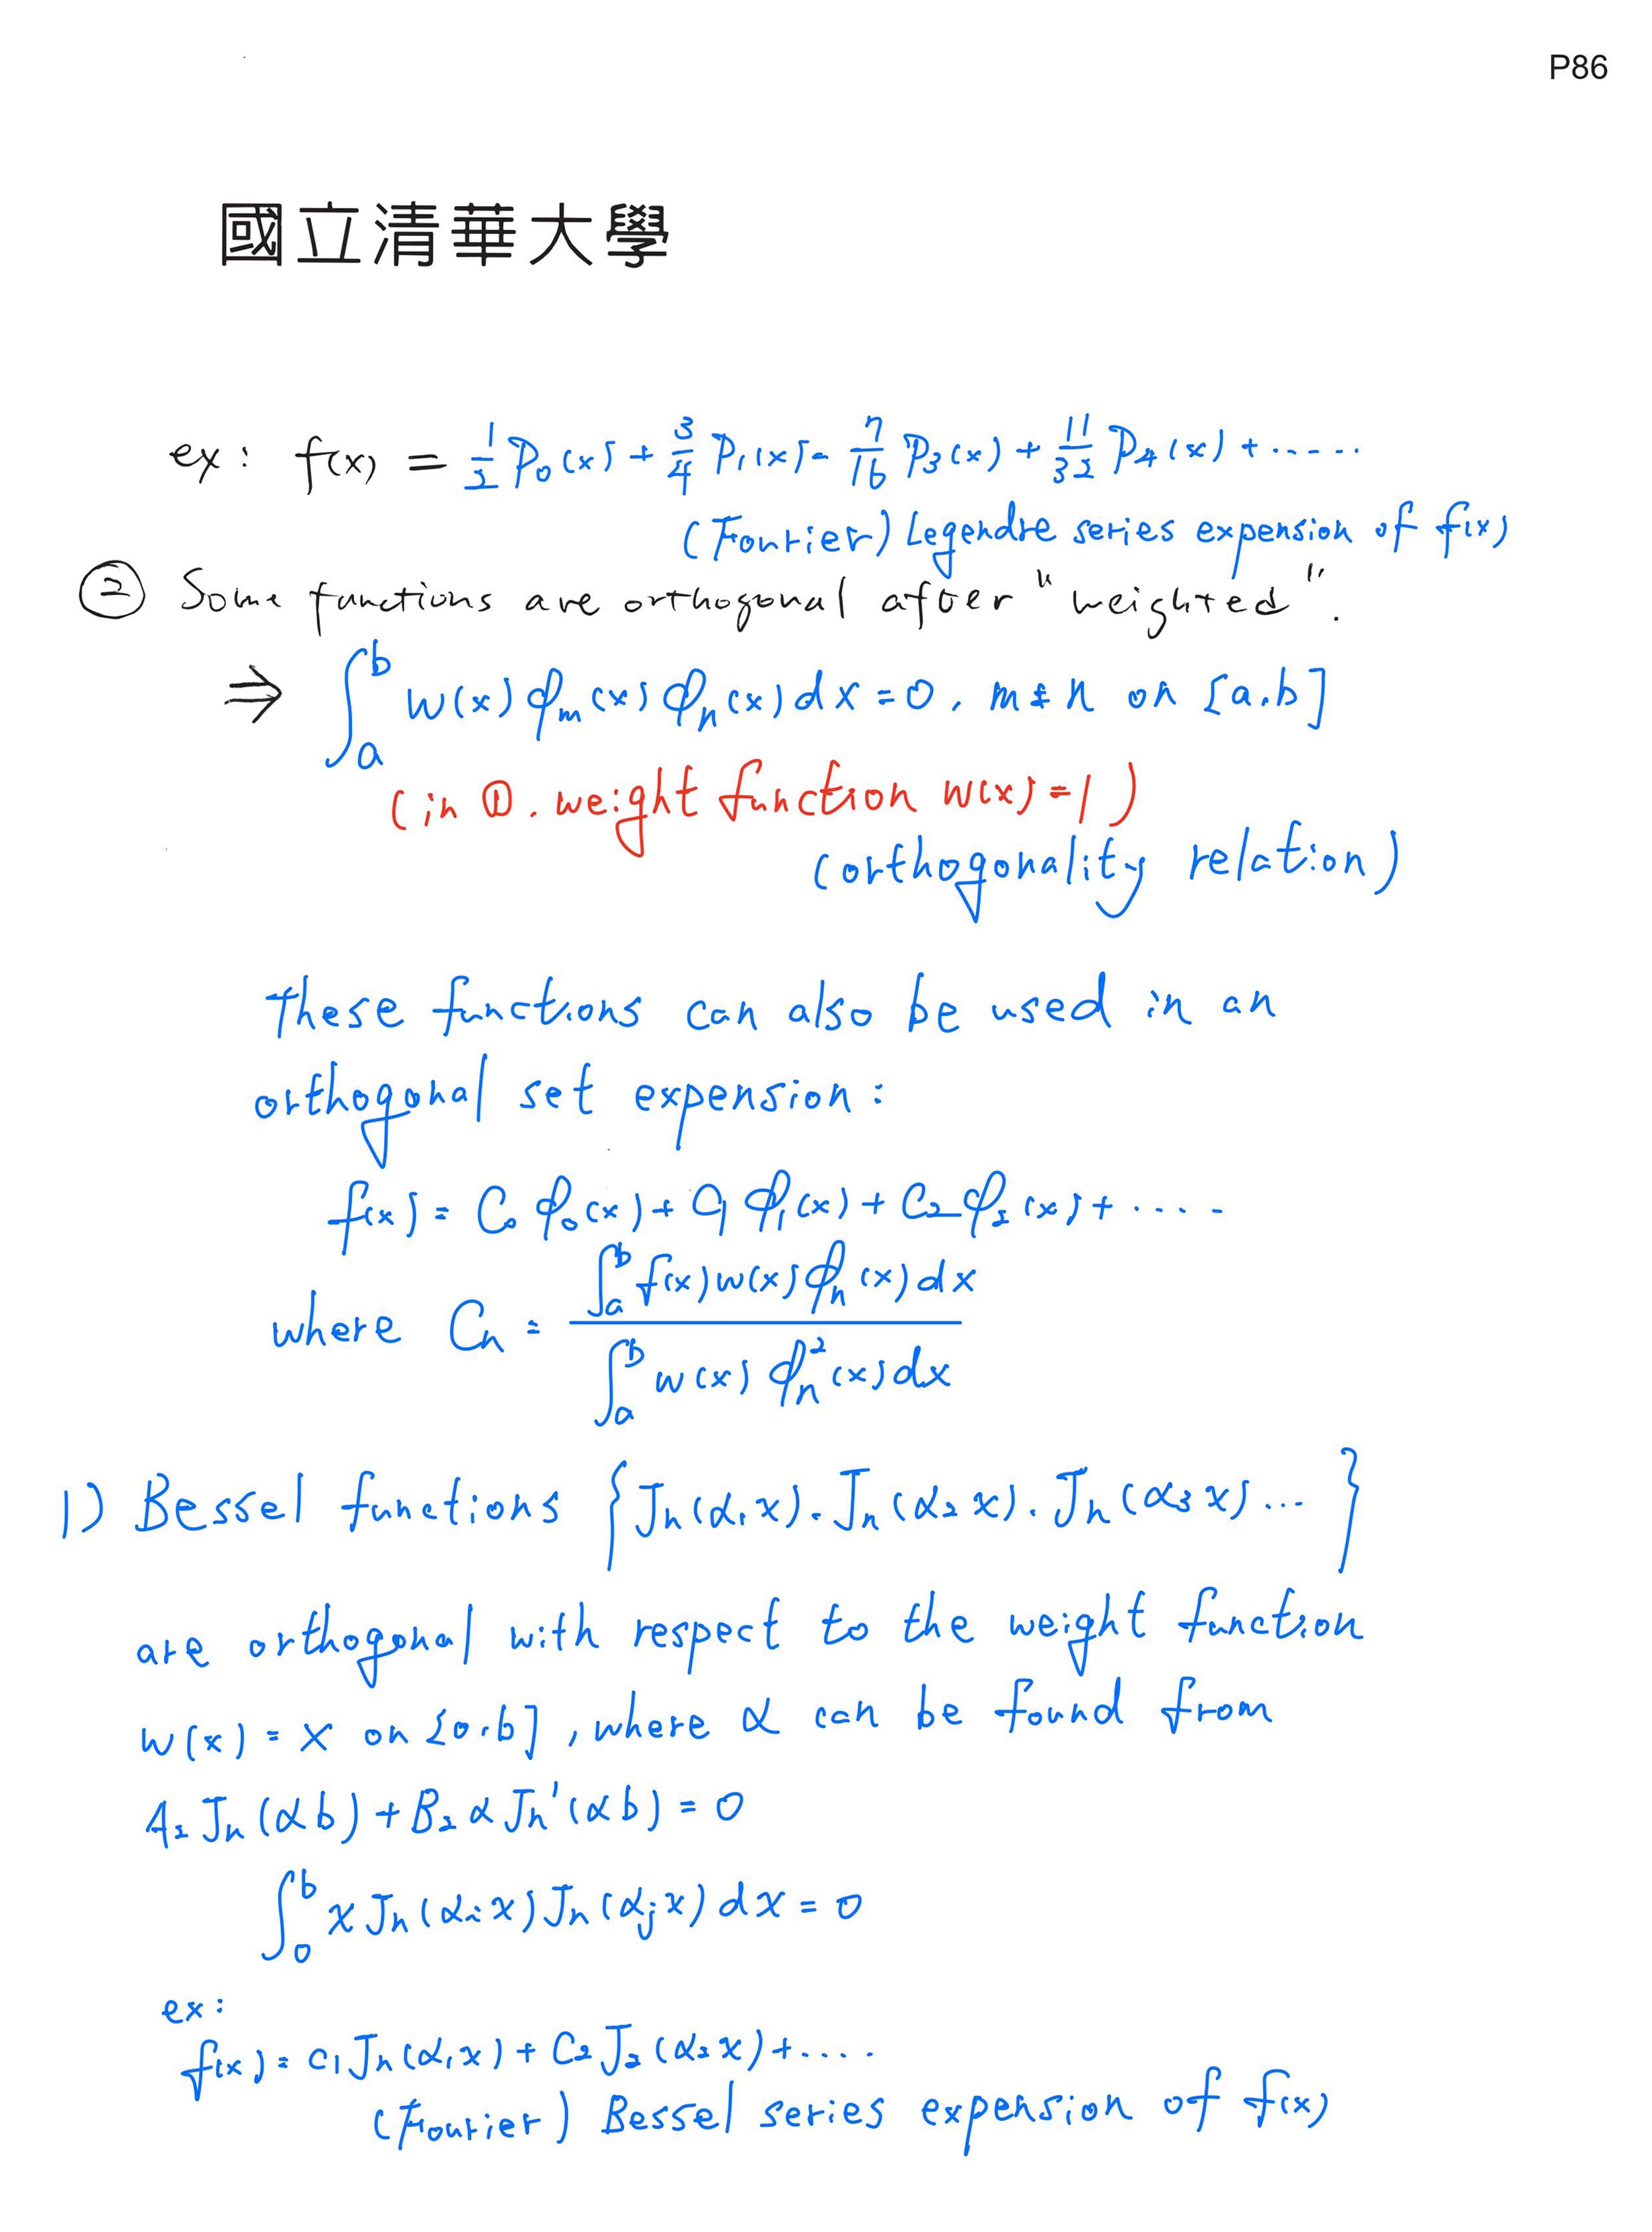 P86
國立清華大學
ex: f(x) = 1/2 P₀(x) + 3/4 P₁(x) - 7/16 P₃(x) + 11/32 P₄(x) + ......
(Fourier) Legendre series expension of f(x)
② Some functions are orthogonal after "weighted".
⇒ ∫ₐᵇ w(x) φₘ(x) φₙ(x) dx = 0, m ≠ n on [a,b]
(in ①, weight function w(x) = 1)
(orthogonality relation)
These functions can also be used in an
orthogonal set expension:
f(x) = C₀ φ₀(x) + C₁ φ₁(x) + C₂ φ₂(x) + ....
where Cₙ = ∫ₐᵇ f(x) w(x) φₙ(x) dx / ∫ₐᵇ w(x) φₙ²(x) dx
1) Bessel functions {Jₙ(α₁x), Jₙ(α₂x), Jₙ(α₃x) ... }
are orthogonal with respect to the weight function
w(x) = x on [0,b], where α can be found from
A₂ Jₙ(αb) + B₂ α Jₙ'(αb) = 0
∫₀ᵇ x Jₙ(αᵢx) Jₙ(αⱼx) dx = 0
ex:
f(x) = c₁ Jₙ(α₁x) + C₂ J₂(α₂x) + ....
(Fourier) Bessel series expension of f(x)